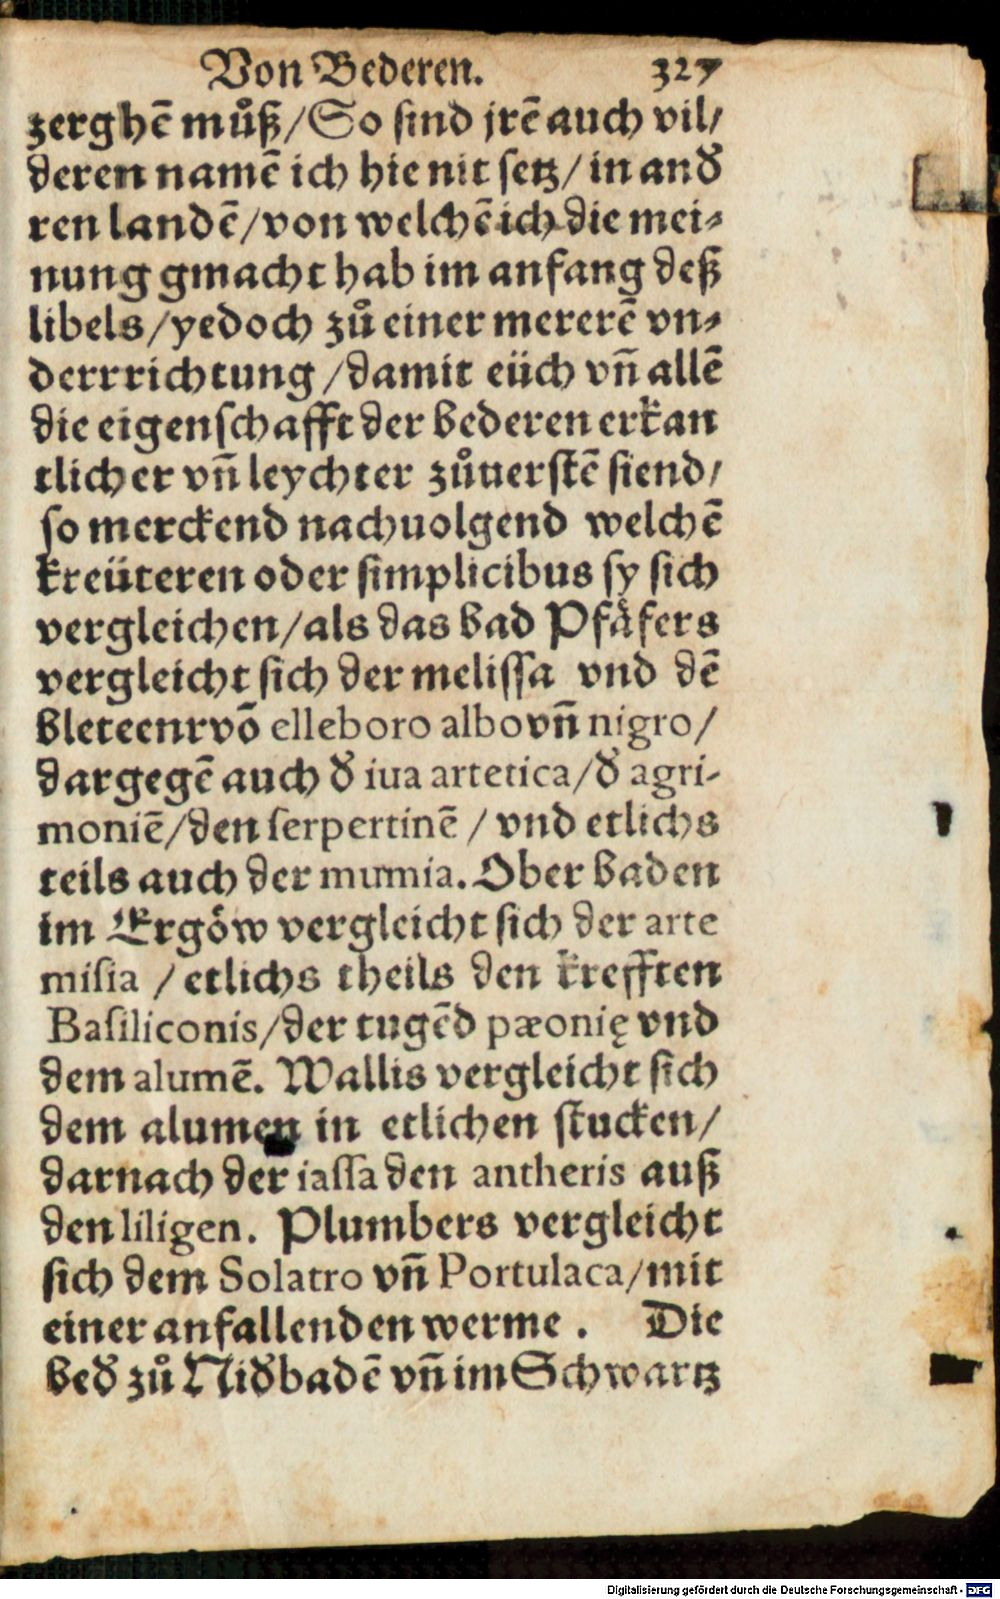 Von Bederen. 327
zerghē můß/So sind jrē auch vil/
deren namē ich hie nit setz/in and
ren landē/von welchē ich die mei⸗
nung gmacht hab im anfang deß
libels/yedoch zů einer mererē vn⸗
derrrichtung/damit eüch vñ allē
die eigenschafft der bederen erkan
tlicher vñ leychter zůuerstē siend/
so merckend nachuolgend welchē
kreüteren oder simplicibus sy sich
vergleichen/als das bad Pfåfers
vergleicht sich der melissa vnd dē
bleteenrvō elleboro albo vñ nigro/
dargegē auch d̕ iua artetica/d̕ agri-
moniē/den serpertinē/vnd etlichs
teils auch der mumia. Ober baden
im Ergöw vergleicht sich der arte
misia/etlichs theils den krefften
Basiliconis/der tugēd pæonię vnd
dem alumē. Wallis vergleicht sich
dem alumen in etlichen stucken/
darnach der iassa den antheris auß
den liligen. Plumbers vergleicht
sich dem Solatro vñ Portulaca/mit
einer anfallenden werme. Die
bed̕ zů Nid̕badē vñ im Schwartz
Digitalisierung gefördert durch die Deutsche Forschungsgemeinschaft - DFG